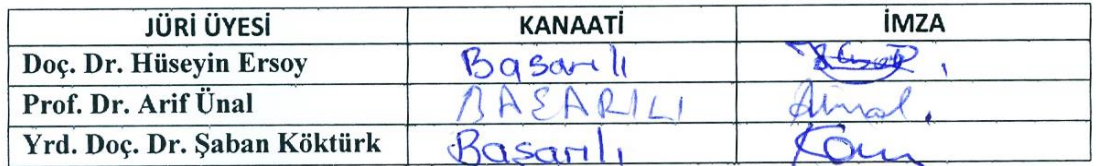 JÜRİ ÜYESİ KANAATİ İMZA
Doç. Dr. Hüseyin Ersoy Başarılı
Prof. Dr. Arif Ünal BAŞARILI
Yrd. Doç. Dr. Şaban Köktürk Başarılı